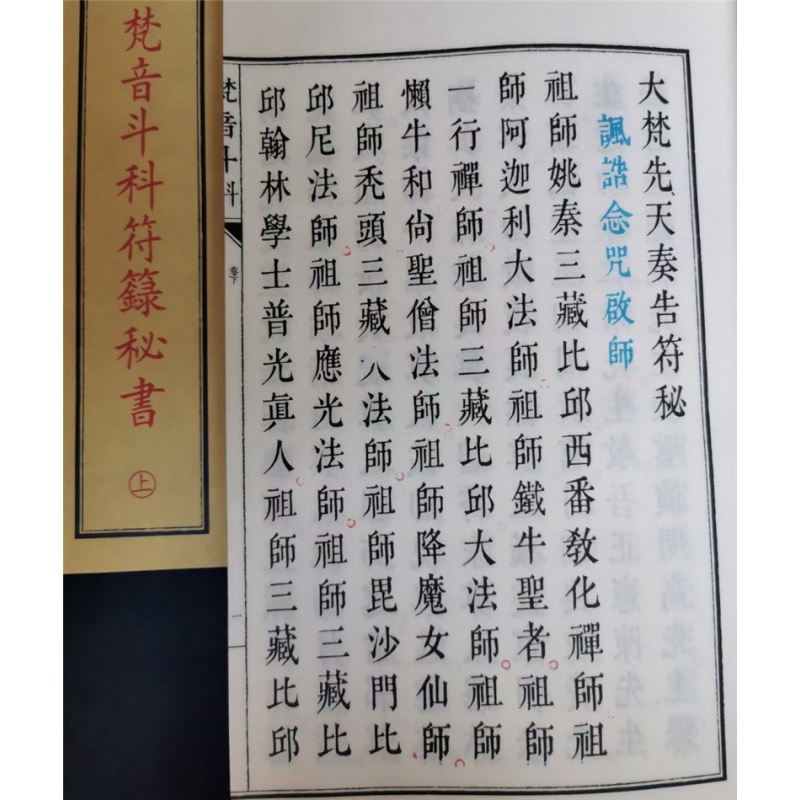 大梵先天奏告符秘
諷誥念咒啟師
祖師姚秦三藏比邱西番教化禪師祖
師阿迦利大法師祖師鐵牛聖者祖師
一行禪師祖師三藏比邱大法師祖師
懶牛和尚聖僧法師祖師降魔女仙師
祖師禿頭三藏大法師祖師毘沙門比
邱尼法師祖師應光法師祖師三藏比
邱翰林學士普光眞人祖師三藏比邱
梵音斗科
卷下
一
梵音斗科符籙秘書
上